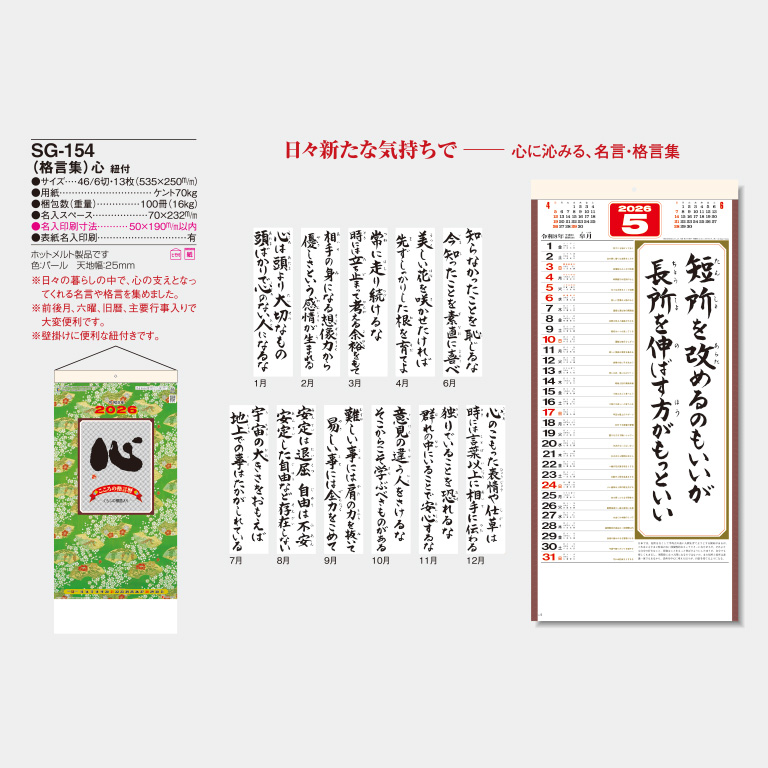 SG-154
（格言集）心 紐付
●サイズ‥‥46/6切・13枚（535×250㎜）
●用紙‥‥‥‥‥‥‥‥‥‥ケント70kg
●梱包数（重量）‥‥‥‥100冊（16kg）
●名入スペース‥‥‥‥‥70×232㎜
●名入印刷寸法‥‥‥‥50×190㎜以内
●表紙名入印刷‥‥‥‥‥‥‥‥‥有
ホットメルト製品です
色:パール 天地幅:25mm
※日々の暮らしの中で、心の支えとなっ
てくれる名言や格言を集めました。
※前後月、六曜、旧暦、主要行事入りで
大変便利です。
※壁掛けに便利な紐付きです。
2026
心
こころの格言集
日々新たな気持ちで
心に沁みる、名言・格言集
心は頭より大切なもの
頭ばかり心のない人になるな
1月
相手の身になる想像力から
優しさという感情が生まれる
2月
常に走り続けるな
時には立て止まって考える余裕をもて
3月
美しい花を咲かせたければ
先ずしっかりした根を育てよ
4月
知らなかったことを恥じるな
今知ったことを素直に喜べ
6月
宇宙の大きさをおもえば
地上での事はたかがしれている
7月
安定は退屈 自由は不安
安定した自由など存在しない
8月
難しい事には肩の力を抜いて
易しい事には全力をこめて
9月
意見の違う人をさけるな
そこからこそ学ぶべきものがある
10月
独りでいることを恐れるな
群れの中にいることで安心するな
11月
心のこもった表情や仕草は
時には言葉以上に相手に伝わる
12月
4
2026
5
6
令和8年
皐月
短所を改めるのもいいが
長所を伸ばす方がもっといい
たん しょ あらた
ちょう しょ の ほう
1
2
3
4
5
6
7
8
9
10
11
12
13
14
15
16
17
18
19
20
21
22
23
24
25
26
27
28
29
30
31